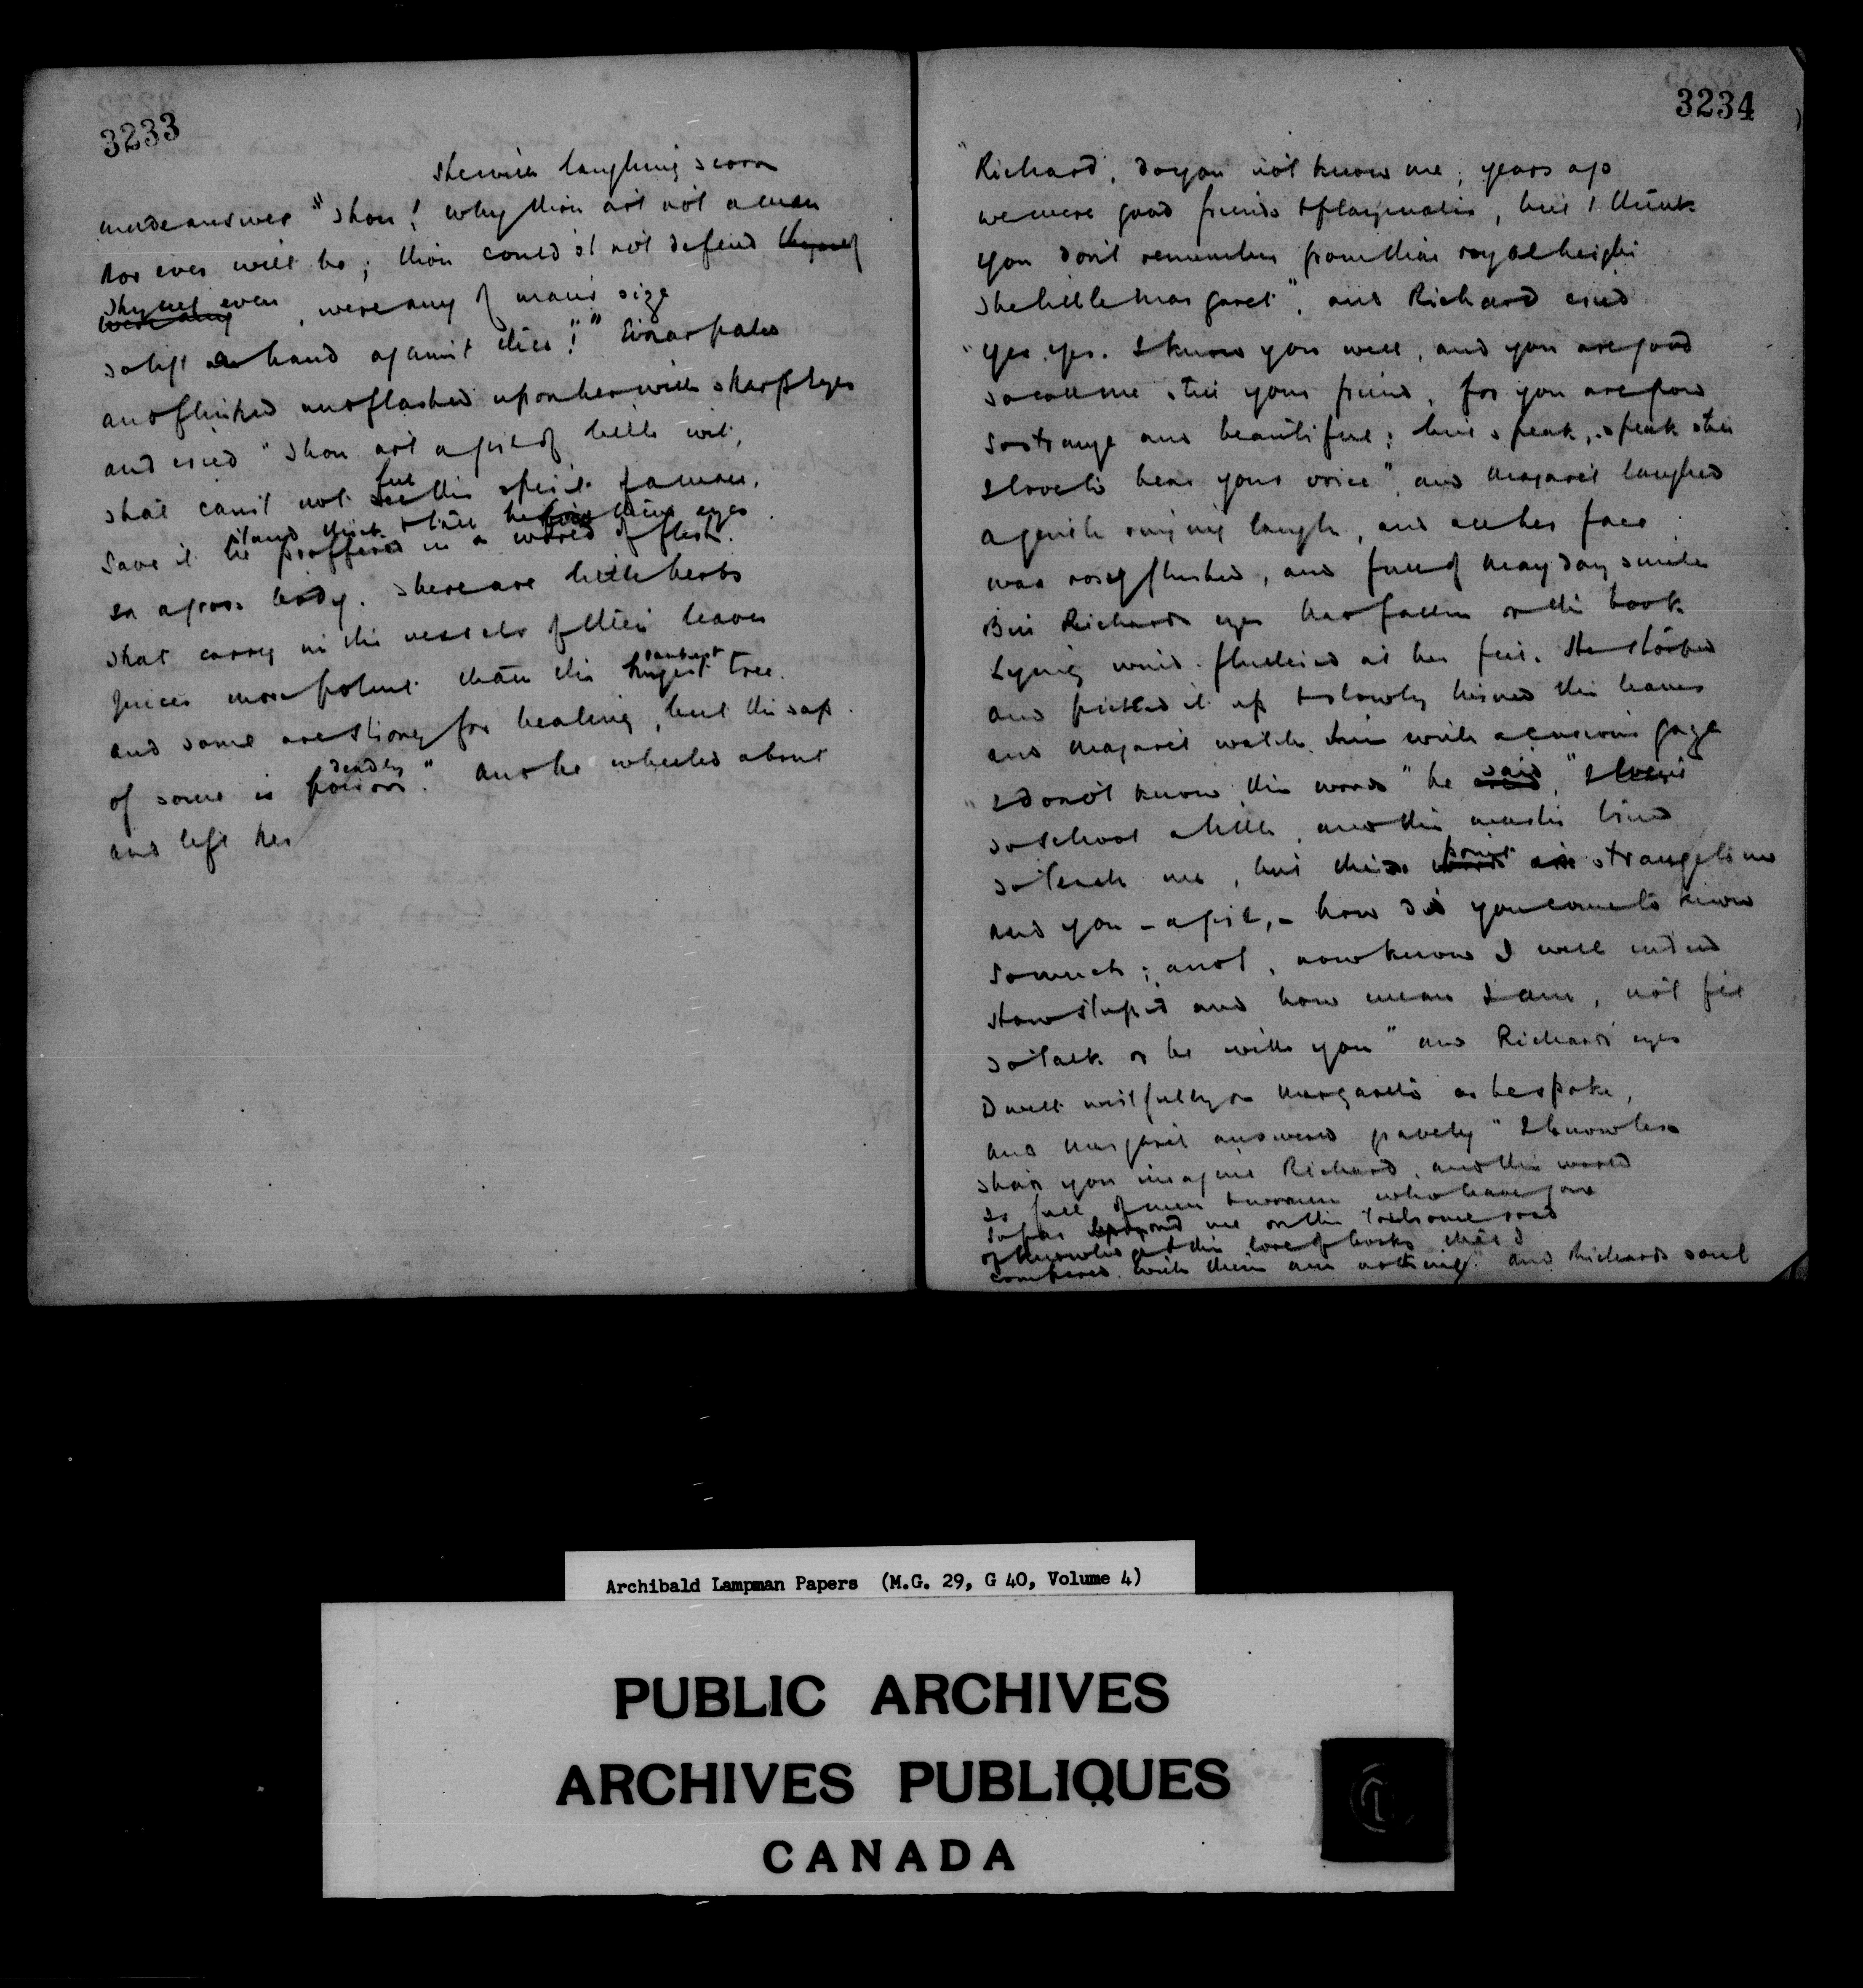 3233
She with laughing scorn
made answer "Thou! why thou art not a man
Nor ever will be; thou could'st not defend thyself
Thyself even, were any of man's size
were any
To lift a hand against thee!" Einar paled
and flushed and flashed upon her with sharp eyes
and cried "Thou art a girl of little wit,
That canst not see the spirit of a man,
feel
Save it be proffered in a world of flesh.
stand thick & tall before thine eyes
In a gross body. There are little herbs
That carry in the vessels of their leaves
Juices more potent than the hugest tree.
And some are strong for healing, but the sap
of some is poison." And he wheeled about
deadly
and left her
3234
"Richard, do you not know me, years ago
we were good friends & playmates, but I think
you don't remember from that royal height
The little Margaret", and Richard cried
"Yes, yes. I know you well, and you are good
To call me still your friend, for you are grown
So strange and beautiful; but speak, speak still
I love to hear your voice", and Margaret laughed
a gentle ringing laugh, and all her face
was rosy flushed, and full of May day smiles
But Richard's eyes had fallen on the book
Lying wind-fluttered at her feet. He stooped
and picked it up & slowly turned the leaves
and Margaret watched him with a curious gaze
"I do not know the words" he said, "I went
To school a little, and the master tried
To teach me, but this is strange to me
And you – a girl, – how did you come to know
So much; and I, now know I well indeed
How stupid and how mean I am, not fit
To talk or be with you" and Richard's eyes
Dwelt wistfully on Margaret's as he spoke,
And Margaret answered gravely "I know less
Than you imagine Richard, and the world
Is full of men & women who have gone
So far beyond me on the toilsome road
of knowledge and the love of books that I
compared with them am nothing." And Richard's soul
Archibald Lampman Papers (M.G. 29, G 40, Volume 4)
PUBLIC ARCHIVES
ARCHIVES PUBLIQUES
CANADA